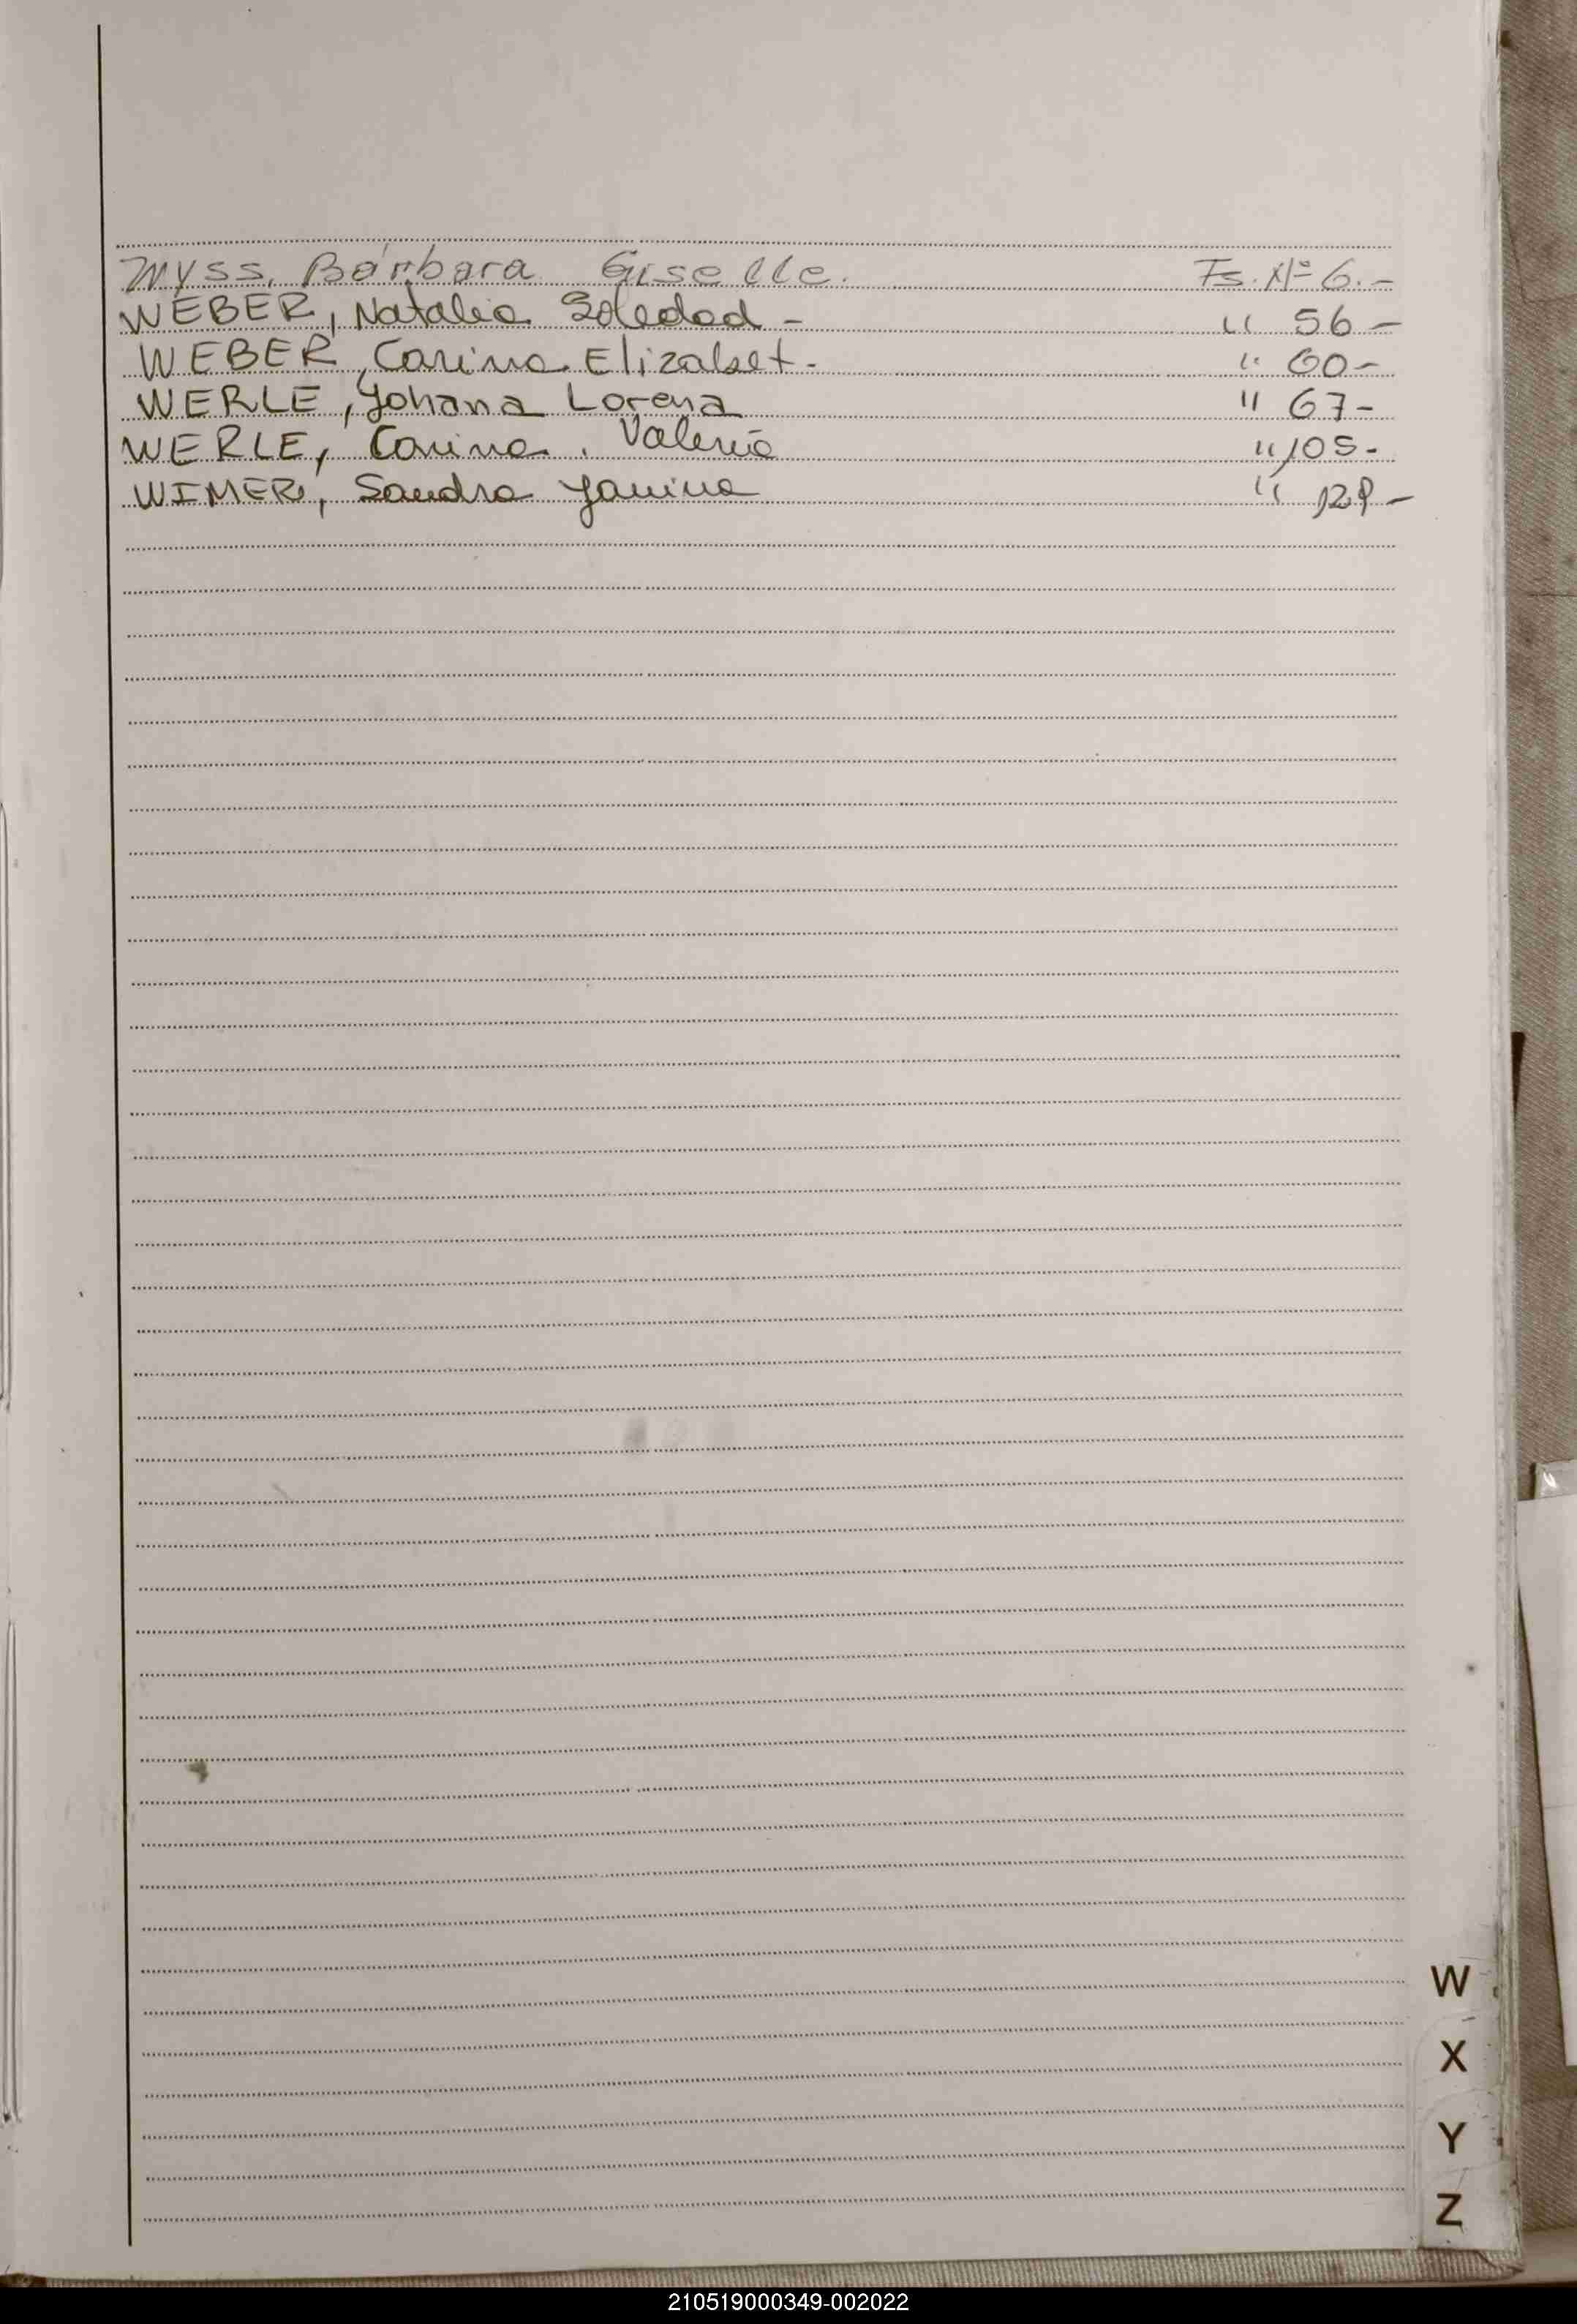 Wyss, Bárbara Giselle. Fs. Nº 6.-
WEBER, Natalia Soledad - " 56-
WEBER, Carina Elizabet. " 60-
WERLE, Yohana Lorena " 67-
WERLE, Carina. Valeria " 105-
WIMER, Sandra Yanina " 129-
W
X
Y
Z
210519000349-002022